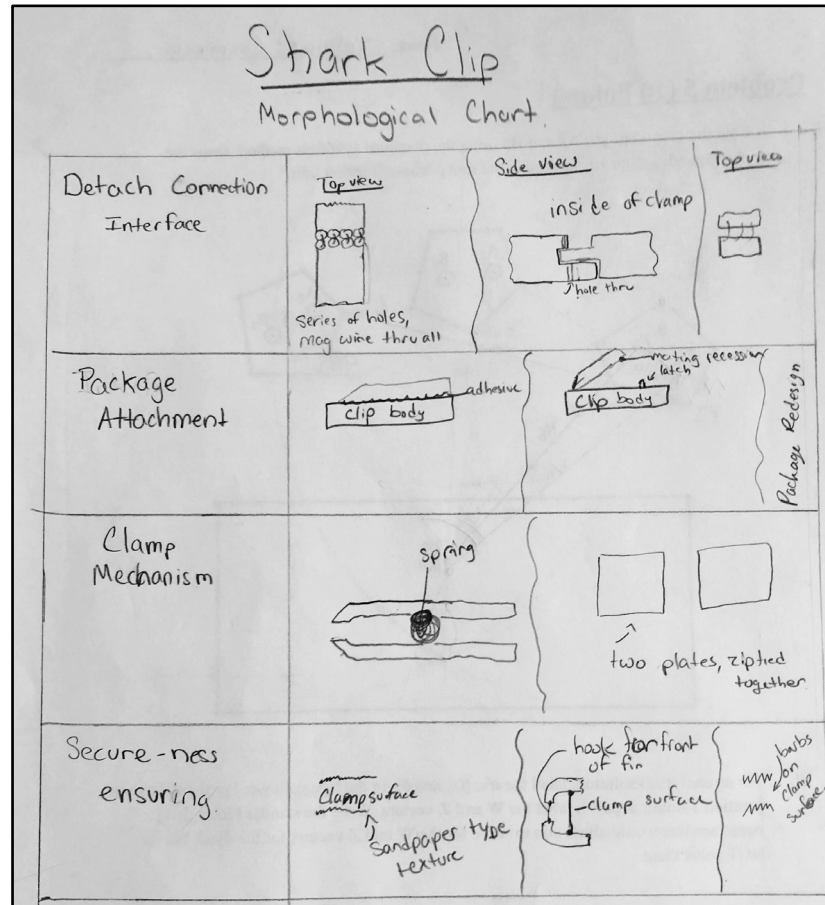 Shark Clip
Morphological Chart.
Detach Connection
Interface
Top view
series of holes,
mag wire thru all
Side view
inside of clamp
hole thru
Top view
Package
Attachment
adhesive
Clip body
mating recession
latch
Clip body
Package Redesign
Clamp
Mechanism
spring
two plates, ziptied
together
Secure-ness
ensuring
Clamp surface
Sandpaper type
texture
hook for front
of fin
clamp surface
barbs
on
clamp
surface